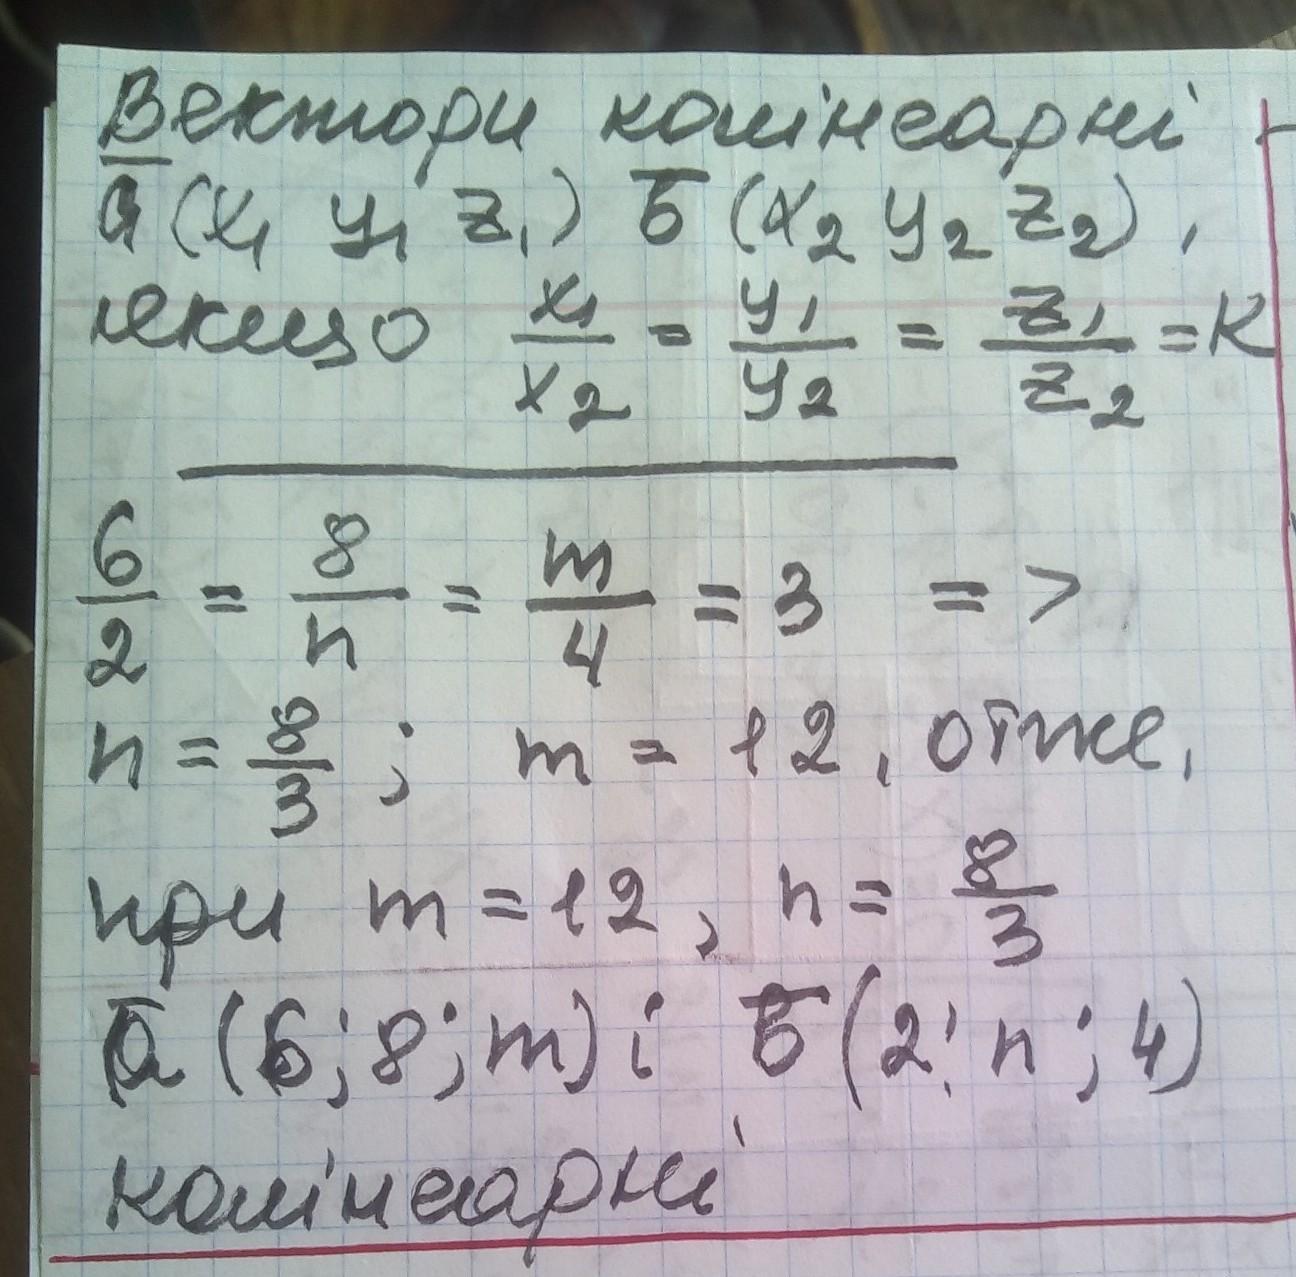 Вектори колінеарні -
a̅ (x₁ y₁ z₁) b̅ (x₂ y₂ z₂) ,
якщо x₁/x₂ = y₁/y₂ = z₁/z₂ = K
6/2 = 8/n = m/4 = 3 =>
n = 8/3 ; m = 12, отже,
при m = 12, n = 8/3
a̅ (6; 8; m) і b̅ (2; n; 4)
колінеарні